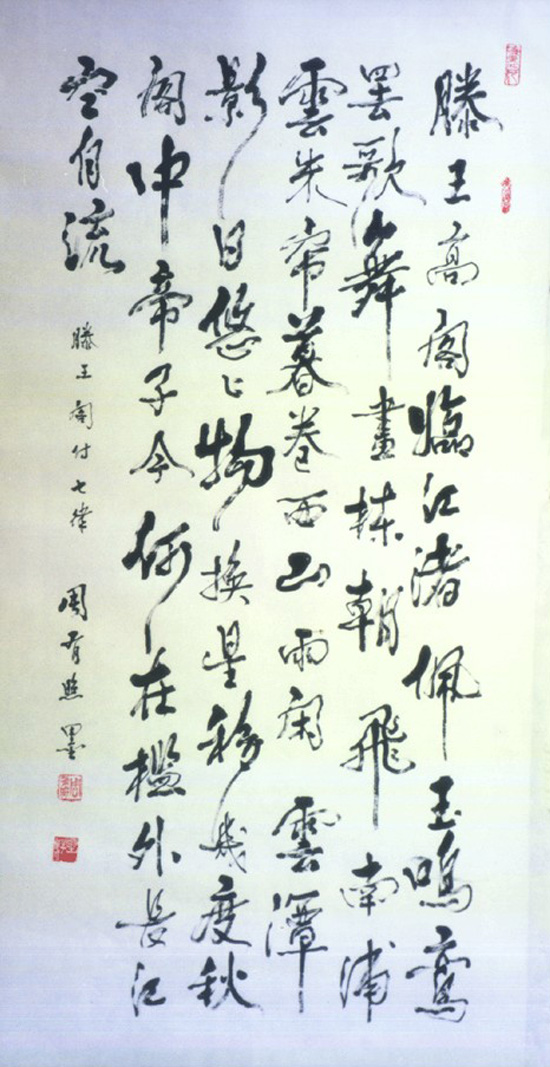 滕王高阁臨江渚佩玉鳴鸾
罢歌舞畫棟朝飛南浦
雲朱帘暮卷西山雨闲雲潭
影日悠々物換星移幾度秋
阁中帝子今何在檻外長江
空自流
滕王阁付七律 周有照墨